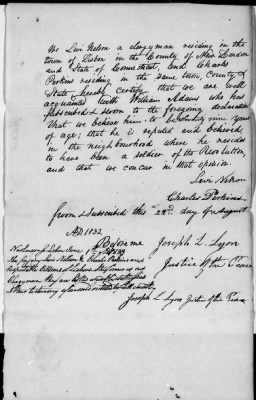 We Levi Nelson a clergyman residing in the
town of Lisbon in the County of New London
and State of Connecticut, and Charles
Perkins residing in the same town, County &
State hereby certify that we are well
acquainted with William Adams who has
subscribed & sworn to the foregoing declaration
that we believe him to be seventy nine years
of age; that he is reputed and believed,
in the neighbourhood where he resides
to have been a soldier of the Revolution,
and that we concur in that opinion
Levi Nelson
Charles Perkins
Sworn & subscribed this 22nd day of August
AD 1832
Before me Joseph L. Lyon
Justice of the Peace
the foregoing Levi Nelson & Charles Perkins are
respectable citizens of Lisbon
Clergyman
Joseph L. Lyon Justice of the Peace